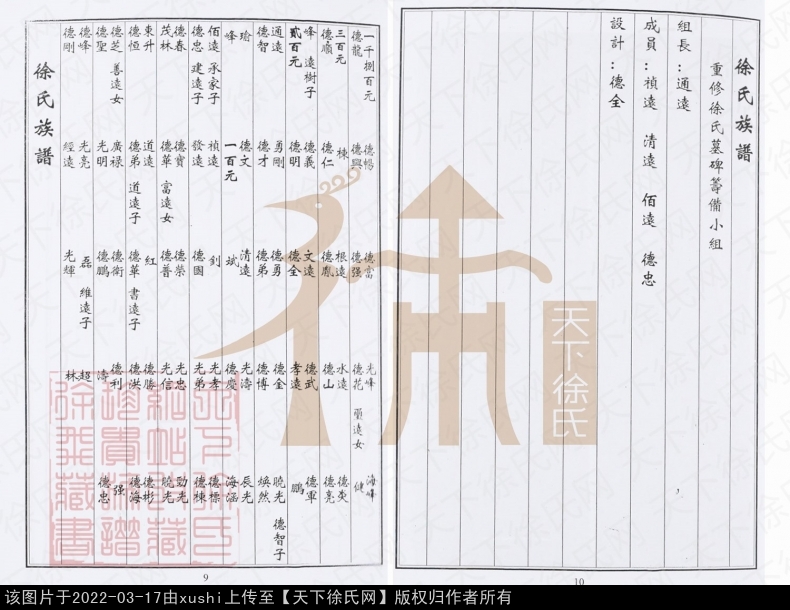 徐氏族譜
重修徐氏墓碑籌備小組
組長：通遠
成員：禎遠 清遠 佰遠 德忠
設計：德全
10
一千捌百元 德暢 德富 光峰 海峰
德龍 德興 德强 德花 健
三百元 棟 根遠 水遠 德炎
德順 德仁 德胤 德山 德亮
峰 遠樹子 德義 文遠 德武 德軍
貳百元 德明 德全 孝遠 鵬
通遠 勇剛 德勇 德金 曉光 德智子
德智 德才 德弟 德博 煥然
瑜 德文 清遠 光濤 辰光
峰 一百元 斌 德慶 海涵
佰遠 承家子 禎遠 釗 光孝 德標
德忠 建遠子 發遠 德國 光弟 德棟
德春 德寶 德榮 光忠 勁光
茂林 德華 富遠女 德普 光信 曉光
東升 道遠 紅 德勝 德彬
德恒 德弟 道遠子 德華 書遠子 德洪 德海
德芝 善遠女 廣禄 德衛 德利 强
德聖 光明 德鵬 濤 德忠
德峰 光亮 磊 維遠子 超
德剛 經遠 光輝 林
徐氏族譜
9
天下徐氏
该图片于2022-03-17由xushi上传至【天下徐氏网】版权归作者所有